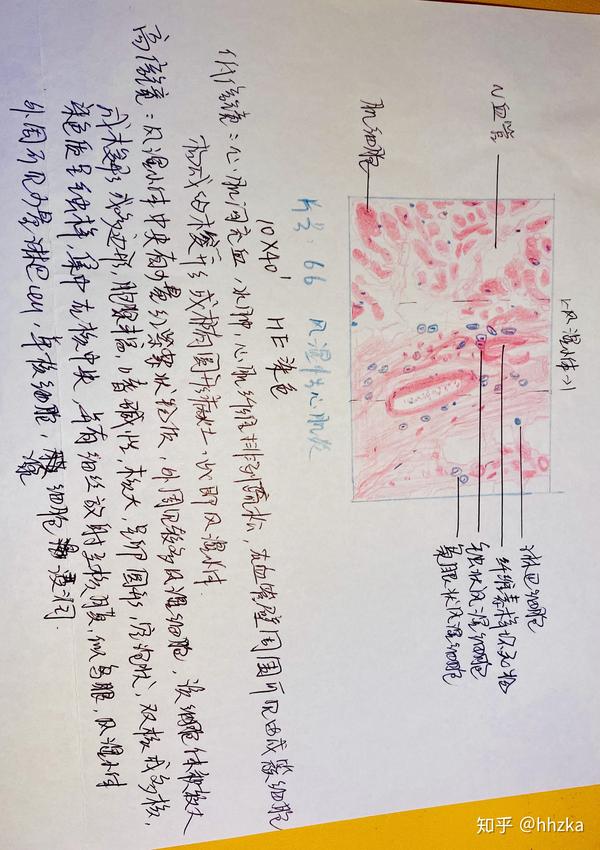 小血管
肌细胞
风湿小体
淋巴细胞
纤维素样坏死物
毛虫状风湿细胞
枭眼状风湿细胞
片号:66 风湿性心肌炎
10×40 HE染色
低倍镜:心肌间充血、水肿,心肌纤维排列疏松,在血管壁周围可见由成簇细胞
构成的梭形或椭圆形病灶,即风湿小体.
高倍镜:风湿小体中央有少量红染絮状物质,外周见较多风湿细胞,该细胞体积较大
成梭形或多边形,胞浆丰富,嗜碱性,核大,呈卵圆形,空泡状,双核或多核,
染色质呈纯样,集中在核中央,并有细丝放射至核膜,似枭眼,风湿小体
外周可见少量淋巴cell,单核细胞,浸润.
知乎 @hhzka